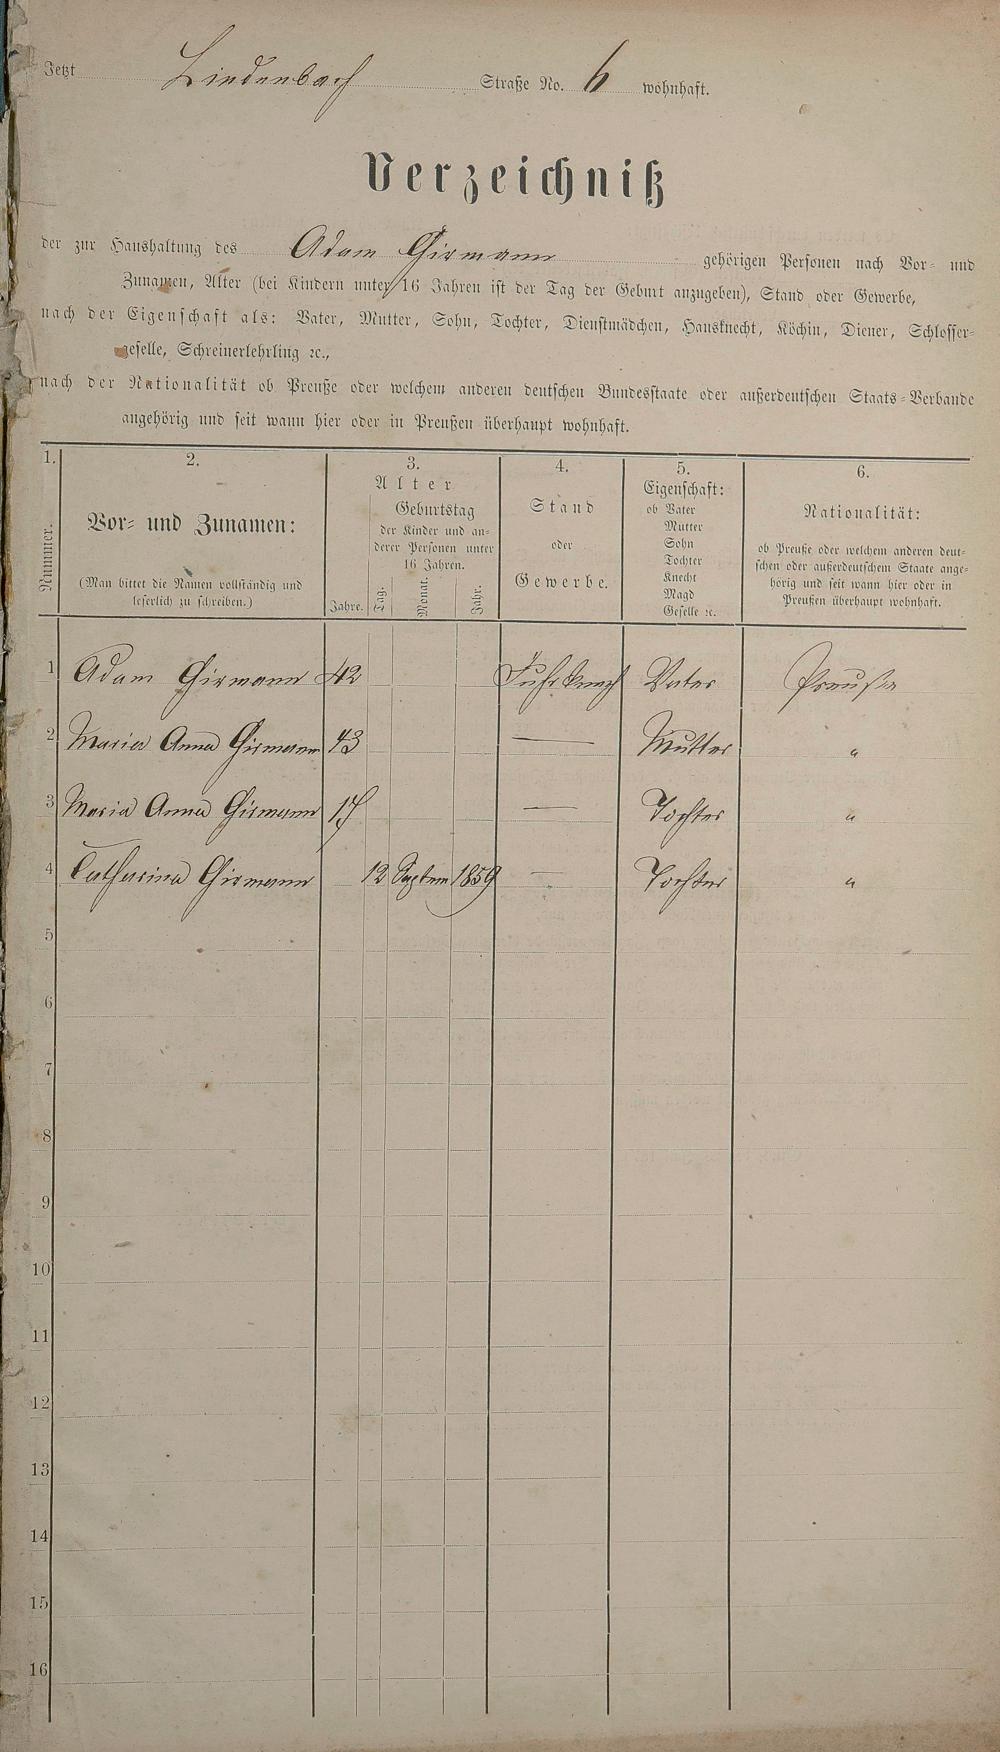 Jetzt Lindenbach Straße No. 6 wohnhaft.
Verzeichniß
der zur Haushaltung des Adam Girmann gehörigen Personen nach Vor- und
Zunamen, Alter (bei Kindern unter 16 Jahren ist der Tag der Geburt anzugeben), Stand oder Gewerbe,
nach der Eigenschaft als: Vater, Mutter, Sohn, Tochter, Dienstmädchen, Hausknecht, Köchin, Diener, Schlosser-
geselle, Schreinerlehrling ꝛc.,
nach der Nationalität ob Preuße oder welchem anderen deutschen Bundesstaate oder außerdeutschen Staats-Verbande
angehörig und seit wann hier oder in Preußen überhaupt wohnhaft.
1. 2. 3. 4. 5. 6.
Nummer.
Vor- und Zunamen:
(Man bittet die Namen vollständig und
leserlich zu schreiben.)
Alter
Jahre.
Geburtstag
der Kinder und an-
derer Personen unter
16 Jahren.
Tag. Monat. Jahr.
Stand
oder
Gewerbe.
Eigenschaft:
ob Vater
Mutter
Sohn
Tochter
Knecht
Magd
Geselle ꝛc.
Nationalität:
ob Preuße oder welchem anderen deut-
schen oder außerdeutschem Staate ange-
hörig und seit wann hier oder in
Preußen überhaupt wohnhaft.
1 Adam Girmann 42 Fuhrknecht Vater Preuße
2 Maria Anna Girmann 43 — Mutter "
3 Maria Anna Girmann 17 — Tochter "
4 Catharina Girmann 12 Septem 1859 — Tochter "
5
6
7
8
9
10
11
12
13
14
15
16